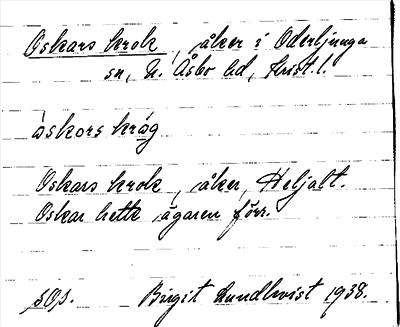 Oskars krok, åker i Oderljunga
sn, N. Åsbo hd, Krist. l.
òskors kråg
Oskars krok, åker, Heljalt.
Oskar hette ägaren förr.
sOs. Birgit Lundkvist 1938.